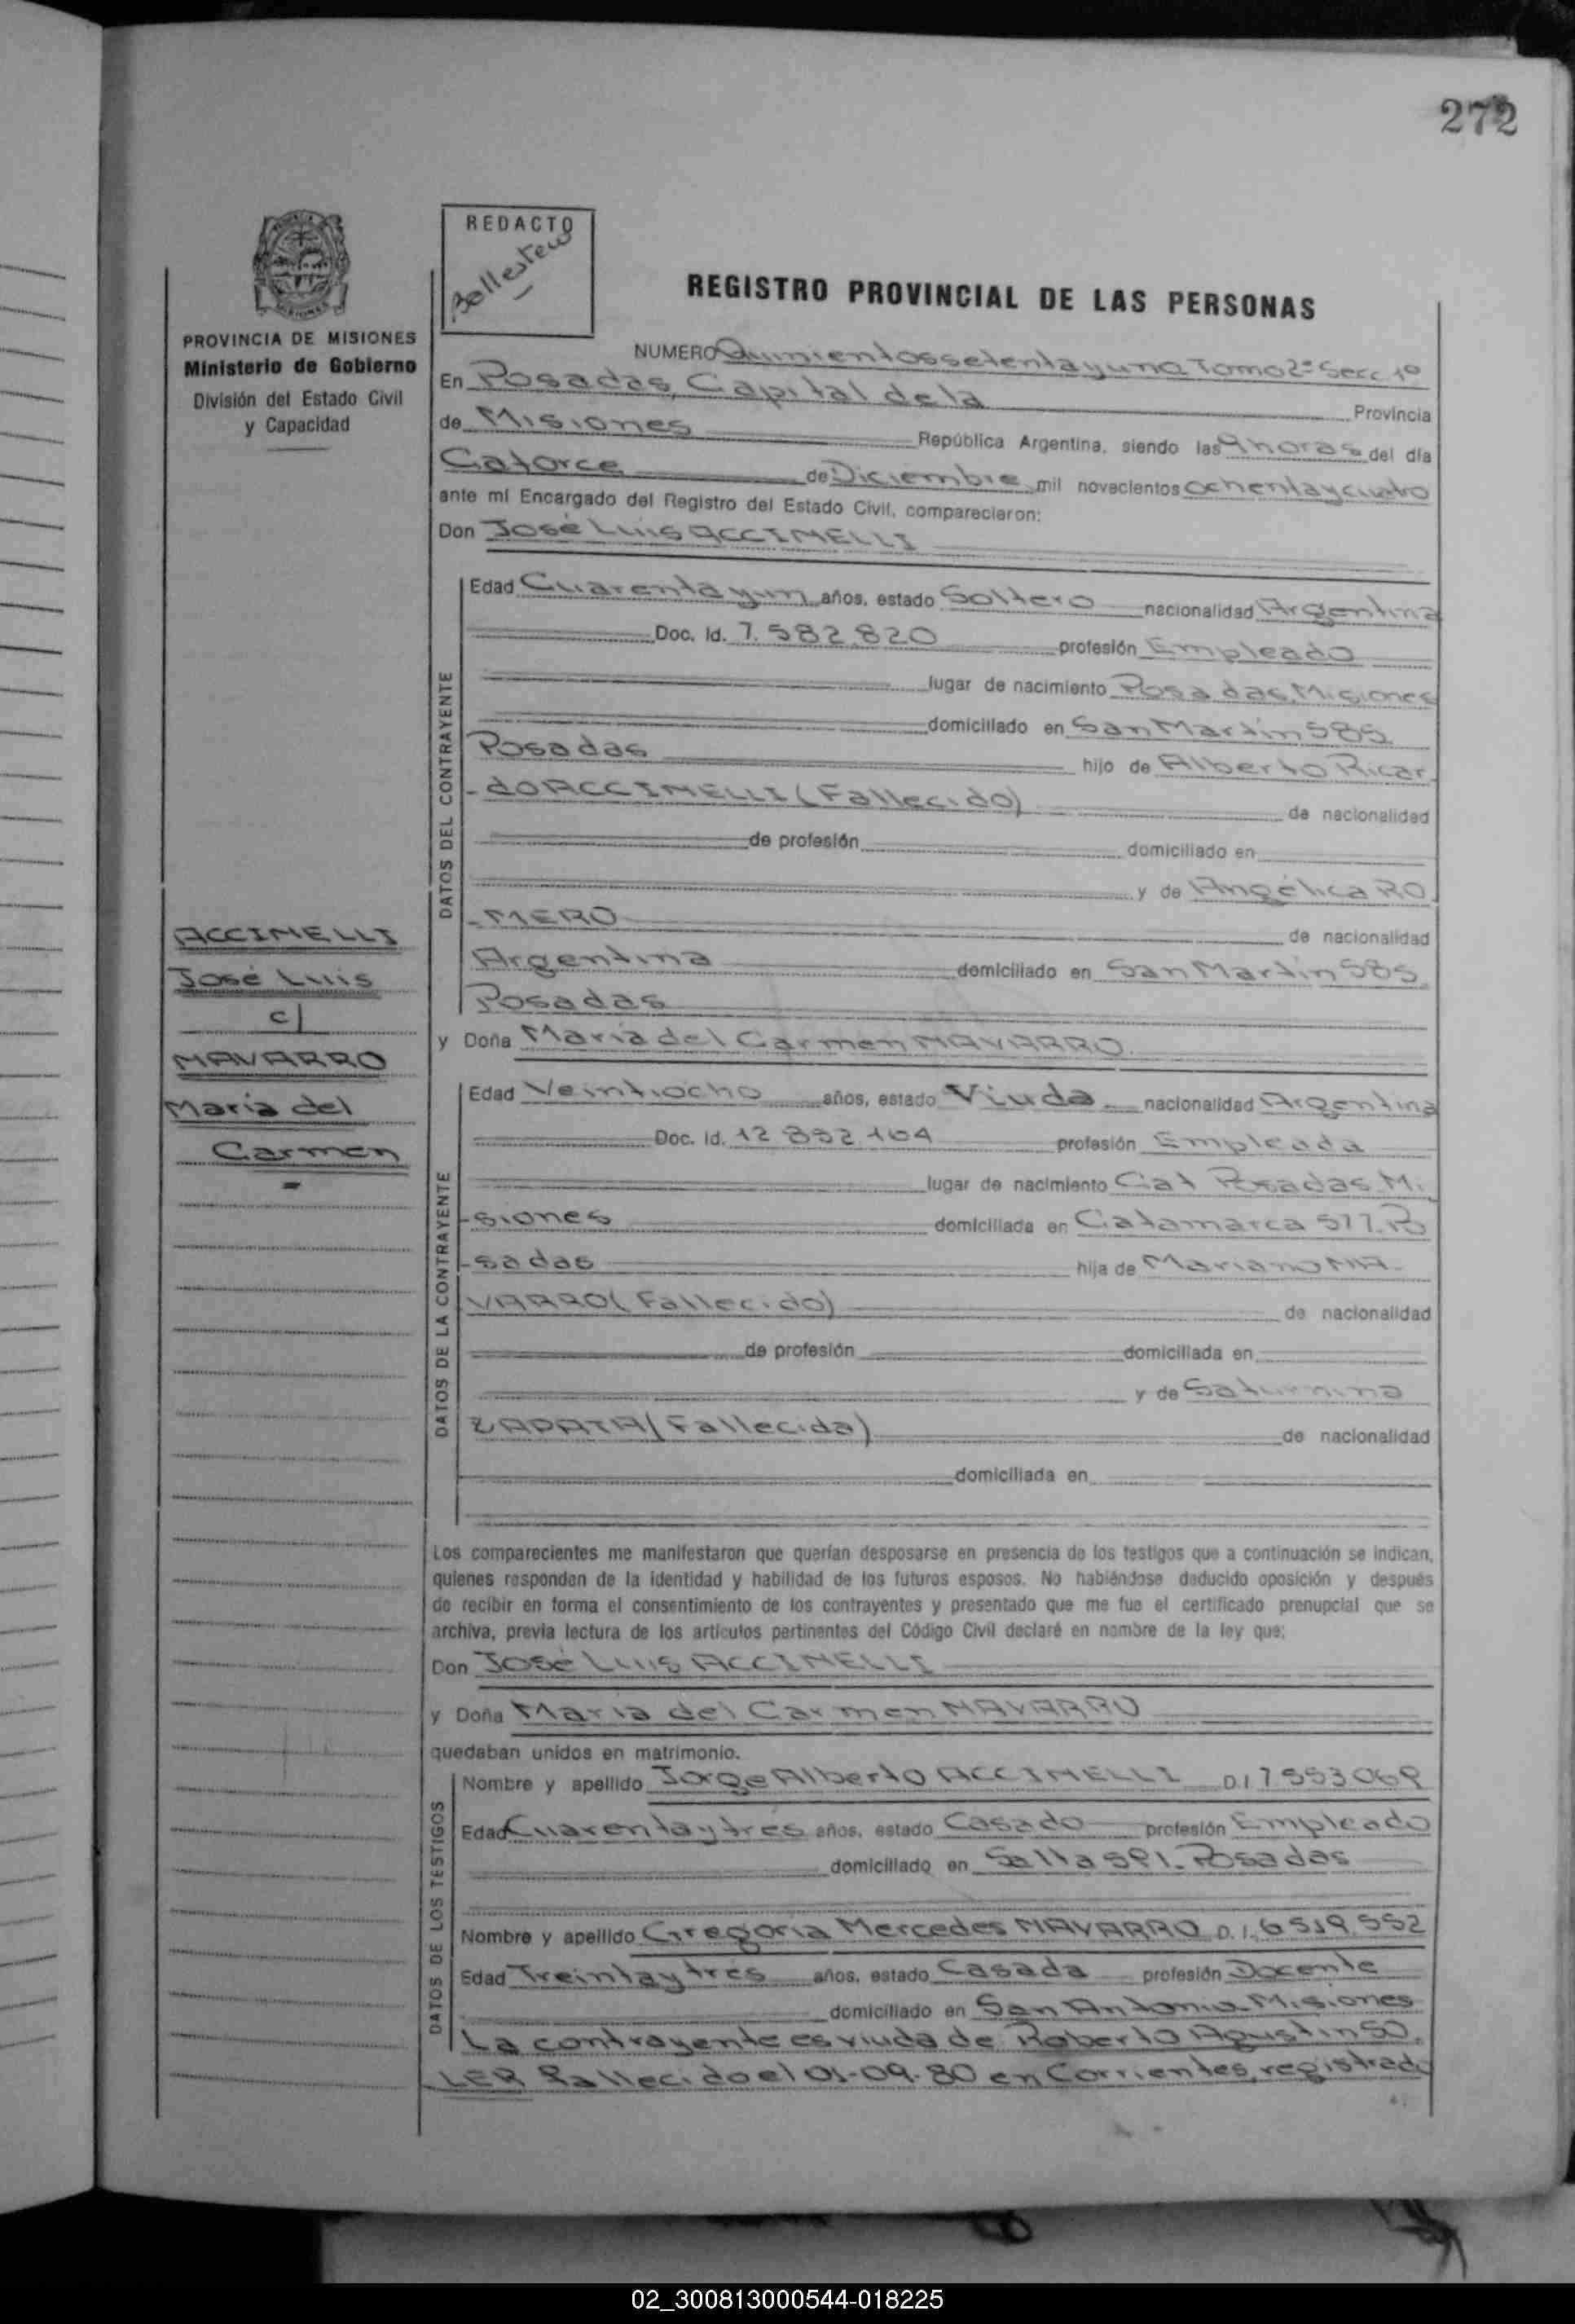 272
REDACTO
Ballesteu
REGISTRO PROVINCIAL DE LAS PERSONAS
PROVINCIA DE MISIONES
Ministerio de Gobierno
División del Estado Civil
y Capacidad
NUMERO Quinientossetentayuna Tomo 2º Secc 1º
En Posadas, Capital de la Provincia
de Misiones República Argentina, siendo las 9 horas del día
Catorce de Diciembre mil novecientos ochentaycuatro
ante mí Encargado del Registro del Estado Civil, comparecieron:
Don José Luis ACCINELLI
DATOS DEL CONTRAYENTE
Edad Cuarentayun años, estado Soltero nacionalidad Argentina
Doc. Id. 7.582.820 profesión Empleado
lugar de nacimiento Posadas, Misiones
domiciliado en San Martín 585
Posadas hijo de Alberto Ricar
-do ACCINELLI (Fallecido) de nacionalidad
de profesión domiciliado en
y de Angélica RO
-MERO de nacionalidad
Argentina domiciliado en San Martín 585
Posadas
ACCINELLI
José Luis
c/
NAVARRO
María del
Carmen
y Doña María del Carmen NAVARRO
DATOS DE LA CONTRAYENTE
Edad Veintiocho años, estado Viuda nacionalidad Argentina
Doc. Id. 12 852 104 profesión Empleada
lugar de nacimiento Cat Posadas, Mi.
-siones domiciliada en Catamarca 577. Po
-sadas hija de Mariano NA-
VARRO (Fallecido) de nacionalidad
de profesión domiciliada en
y de Saturnina
ZAPATA (Fallecida) de nacionalidad
domiciliada en
Los comparecientes me manifestaron que querían desposarse en presencia de los testigos que a continuación se indican,
quienes responden de la identidad y habilidad de los futuros esposos. No habiéndose deducido oposición y después
de recibir en forma el consentimiento de los contrayentes y presentado que me fue el certificado prenupcial que se
archiva, previa lectura de los artículos pertinentes del Código Civil declaré en nombre de la ley que:
Don José Luis ACCINELLI
y Doña María del Carmen NAVARRO
quedaban unidos en matrimonio.
DATOS DE LOS TESTIGOS
Nombre y apellido Jorge Alberto ACCINELLI D.I 7553069
Edad Cuarentaytres años, estado Casado profesión Empleado
domiciliado en Salta 591. Posadas
Nombre y apellido Gregoria Mercedes NAVARRO D.I. 6519.552
Edad Treintaytres años, estado Casada profesión Docente
domiciliado en San Antonio-Misiones
La contrayente es viuda de Roberto Agustín SO
LER fallecido el 01-09-80 en Corrientes, registrado
02_300813000544-018225